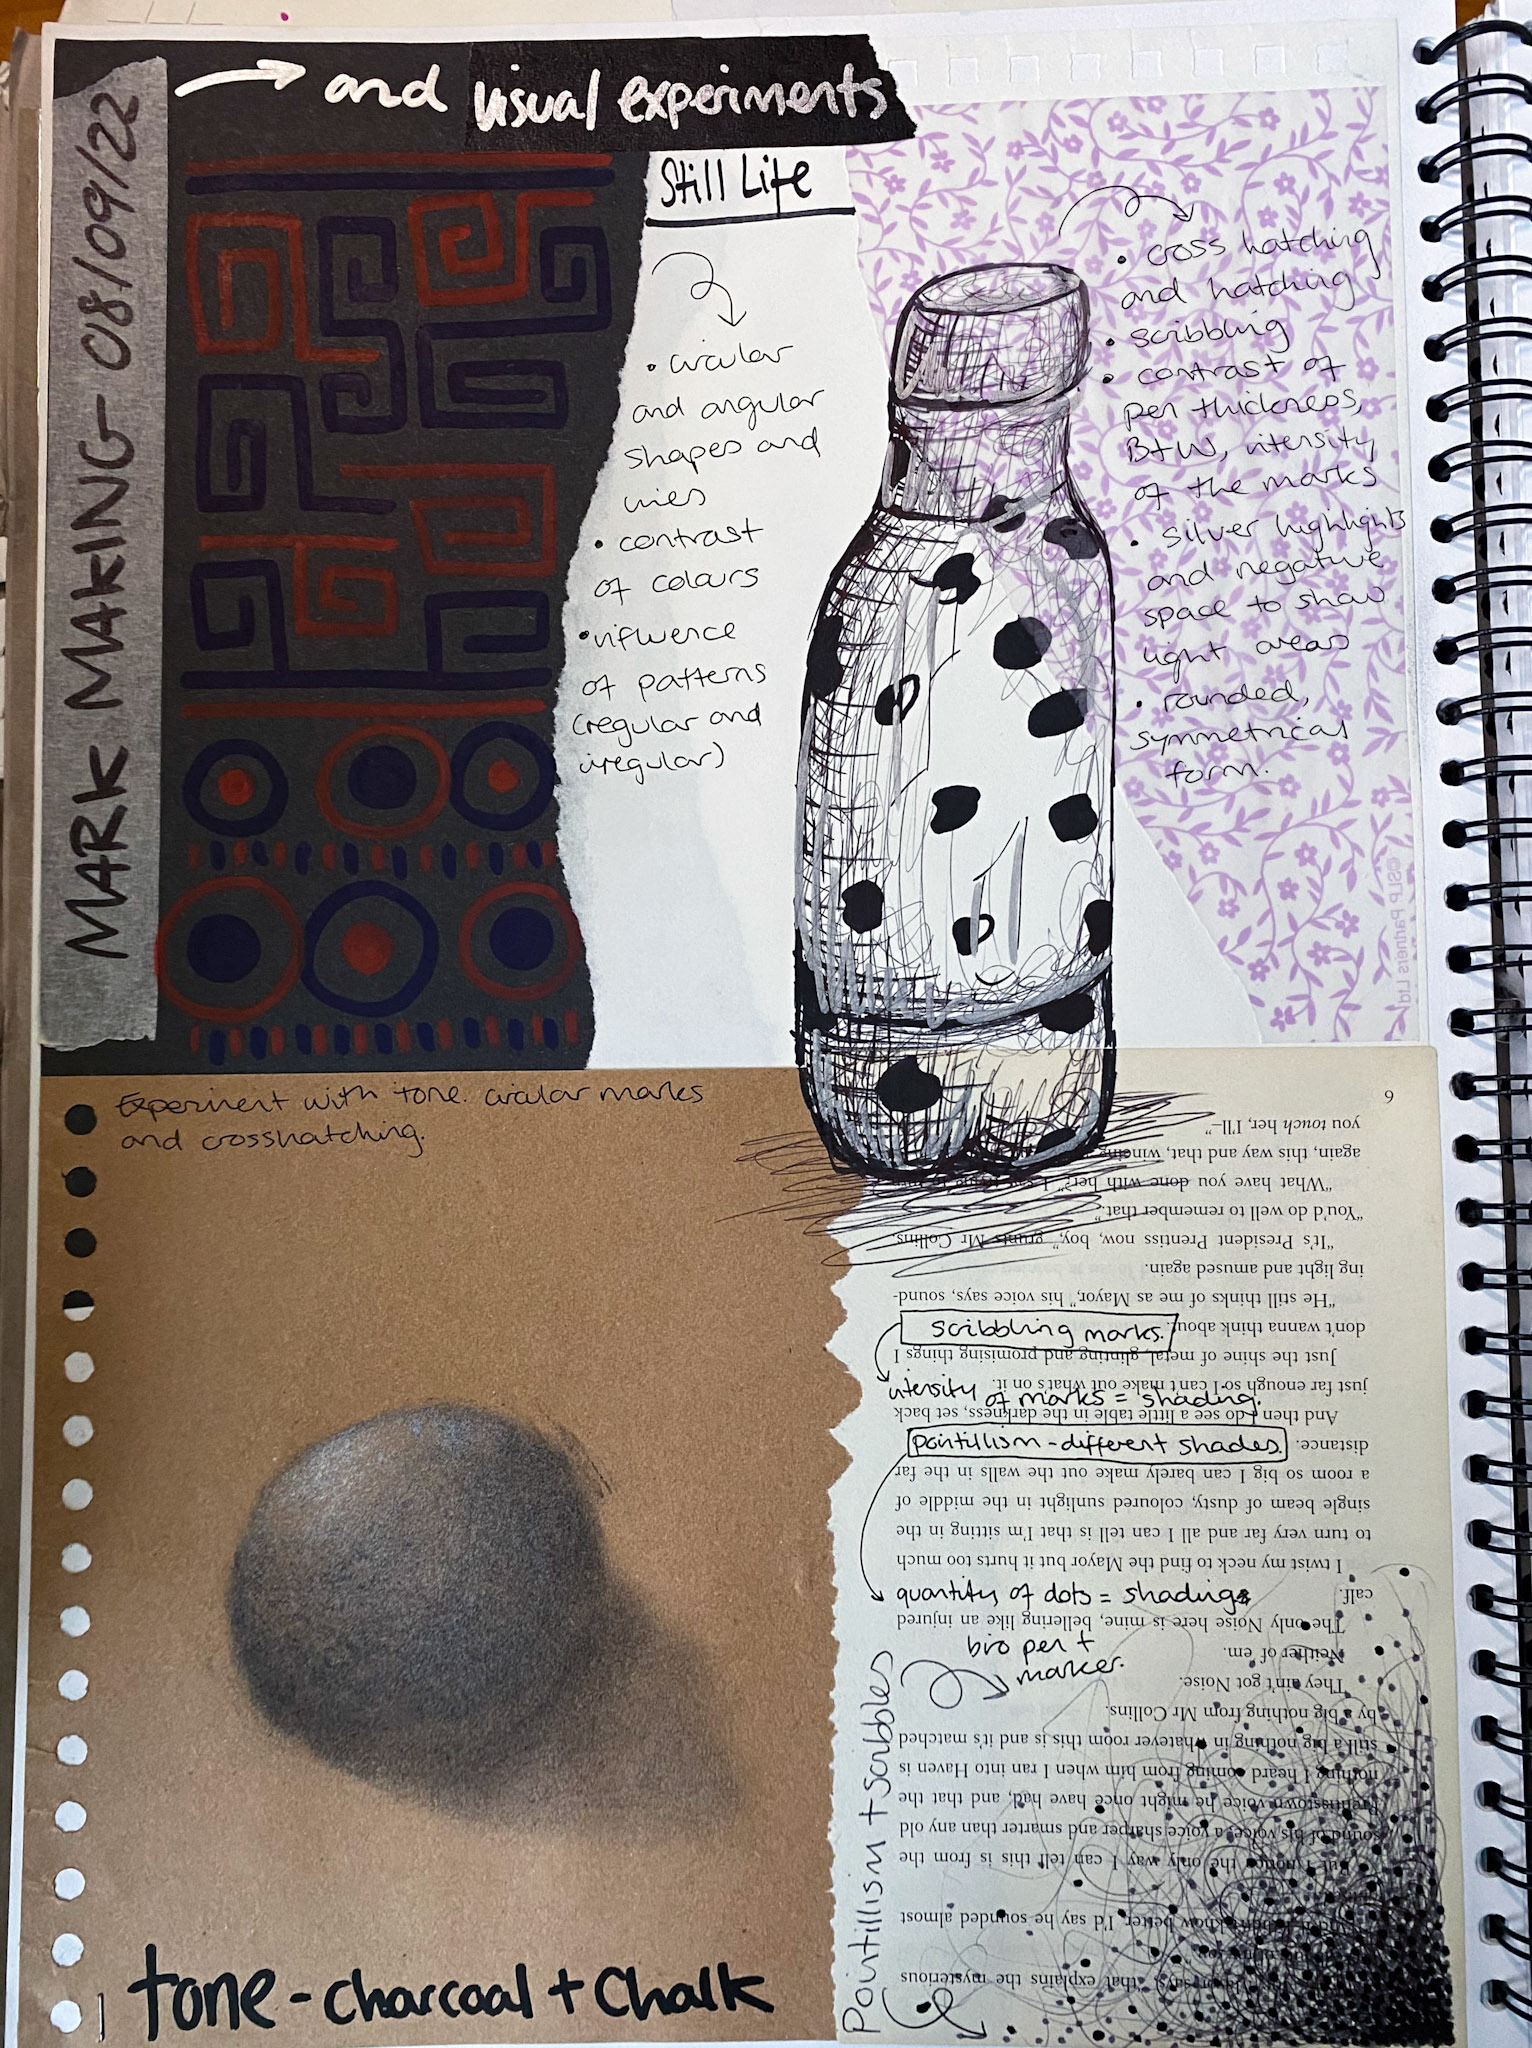 MARK MAKING - 08/09/22
and visual experiments
Still Life
• circular
and angular
shapes and
lines
• contrast
of colours
• influence
of patterns
(regular and
irregular)
• cross hatching
and hatching
• scribbling
• contrast of
pen thickness,
B+W, intensity
of the marks
• silver highlights
and negative
space to show
light areas
• rounded,
symmetrical
form.
©SLP Partners Ltd
Experiment with tone. circular marks
and crosshatching.
tone - charcoal + chalk
scribbling marks.
intensity of marks = shading.
pointillism - different shades.
quantity of dots = shading
bro pen +
marker.
Pointillism + scribbles
that explains the mysterious
know better, I'd say he sounded almost
the only way I can tell this is from the
sound of his voice, a voice sharper and smarter than any old
Prentisstown voice he might once have had, and that the
nothing I heard coming from him when I ran into Haven is
still a big nothing in whatever room this is and it's matched
by a big nothing from Mr Collins.
They ain't got Noise.
Neither of em.
The only Noise here is mine, bellering like an injured
calf.
I twist my neck to find the Mayor but it hurts too much
to turn very far and all I can tell is that I'm sitting in the
single beam of dusty, coloured sunlight in the middle of
a room so big I can barely make out the walls in the far
distance.
And then I do see a little table in the darkness, set back
just far enough so I can't make out what's on it.
Just the shine of metal, glinting and promising things I
don't wanna think about.
“He still thinks of me as Mayor,” his voice says, sound-
ing light and amused again.
“It's President Prentiss now, boy,” grunts Mr Collins.
“You'd do well to remember that.”
“What have you done with her?” I say,
again, this way and that, wincing
you touch her, I'll–”
9